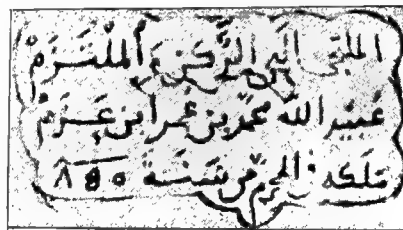 الملتجى الى الركن و الملتزم
عبيد الله محمد بن عمر ابن عزم
ملكه المحرم من سنة ٨٥٥